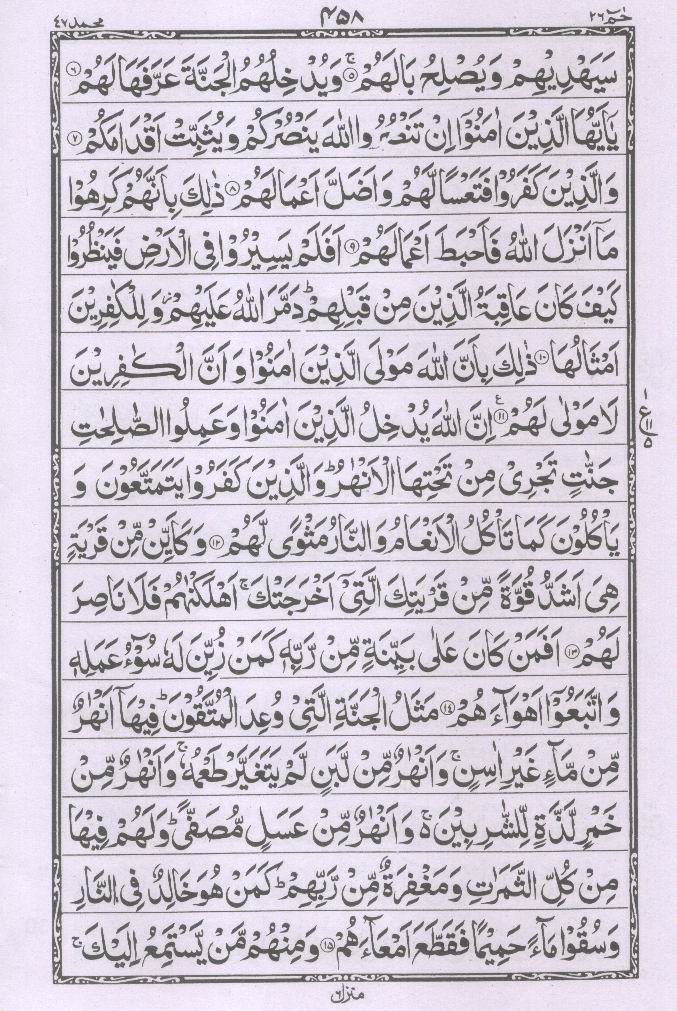 محمد ٤٧ ٤٥٨ حٰمٓ ٢٦
سَيَهْدِيْهِمْ وَيُصْلِحُ بَالَهُمْ ۚ۝٥ وَيُدْخِلُهُمُ الْجَنَّةَ عَرَّفَهَا لَهُمْ ۝٦
يٰٓاَيُّهَا الَّذِيْنَ اٰمَنُوْٓا اِنْ تَنْصُرُوا اللّٰهَ يَنْصُرْكُمْ وَيُثَبِّتْ اَقْدَامَكُمْ ۝٧
وَالَّذِيْنَ كَفَرُوْا فَتَعْسًا لَّهُمْ وَاَضَلَّ اَعْمَالَهُمْ ۝٨ ذٰلِكَ بِاَنَّهُمْ كَرِهُوْا
مَآ اَنْزَلَ اللّٰهُ فَاَحْبَطَ اَعْمَالَهُمْ ۝٩ اَفَلَمْ يَسِيْرُوْا فِي الْاَرْضِ فَيَنْظُرُوْا
كَيْفَ كَانَ عَاقِبَةُ الَّذِيْنَ مِنْ قَبْلِهِمْ ؕ دَمَّرَ اللّٰهُ عَلَيْهِمْ ؗ وَلِلْكٰفِرِيْنَ
اَمْثَالُهَا ۝١٠ ذٰلِكَ بِاَنَّ اللّٰهَ مَوْلَى الَّذِيْنَ اٰمَنُوْا وَاَنَّ الْكٰفِرِيْنَ
لَا مَوْلٰى لَهُمْ ۝١١ ع اِنَّ اللّٰهَ يُدْخِلُ الَّذِيْنَ اٰمَنُوْا وَعَمِلُوا الصّٰلِحٰتِ
١ ع ١١ ٥
جَنّٰتٍ تَجْرِيْ مِنْ تَحْتِهَا الْاَنْهٰرُ ؕ وَالَّذِيْنَ كَفَرُوْا يَتَمَتَّعُوْنَ وَ
يَاْكُلُوْنَ كَمَا تَاْكُلُ الْاَنْعَامُ وَالنَّارُ مَثْوًى لَّهُمْ ۝١٢ وَكَاَيِّنْ مِّنْ قَرْيَةٍ
هِيَ اَشَدُّ قُوَّةً مِّنْ قَرْيَتِكَ الَّتِيْٓ اَخْرَجَتْكَ ۚ اَهْلَكْنٰهُمْ فَلَا نَاصِرَ
لَهُمْ ۝١٣ اَفَمَنْ كَانَ عَلٰى بَيِّنَةٍ مِّنْ رَّبِّهٖ كَمَنْ زُيِّنَ لَهٗ سُوْٓءُ عَمَلِهٖ
وَاتَّبَعُوْٓا اَهْوَآءَهُمْ ۝١٤ مَثَلُ الْجَنَّةِ الَّتِيْ وُعِدَ الْمُتَّقُوْنَ ؕ فِيْهَآ اَنْهٰرٌ
مِّنْ مَّآءٍ غَيْرِ اٰسِنٍ ۚ وَاَنْهٰرٌ مِّنْ لَّبَنٍ لَّمْ يَتَغَيَّرْ طَعْمُهٗ ۚ وَاَنْهٰرٌ مِّنْ
خَمْرٍ لَّذَّةٍ لِّلشّٰرِبِيْنَ ۚ۬ وَاَنْهٰرٌ مِّنْ عَسَلٍ مُّصَفًّى ؕ وَلَهُمْ فِيْهَا
مِنْ كُلِّ الثَّمَرٰتِ وَمَغْفِرَةٌ مِّنْ رَّبِّهِمْ ؕ كَمَنْ هُوَ خَالِدٌ فِي النَّارِ
وَسُقُوْا مَآءً حَمِيْمًا فَقَطَّعَ اَمْعَآءَهُمْ ۝١٥ وَمِنْهُمْ مَّنْ يَّسْتَمِعُ اِلَيْكَ ۚ
منزل ٦